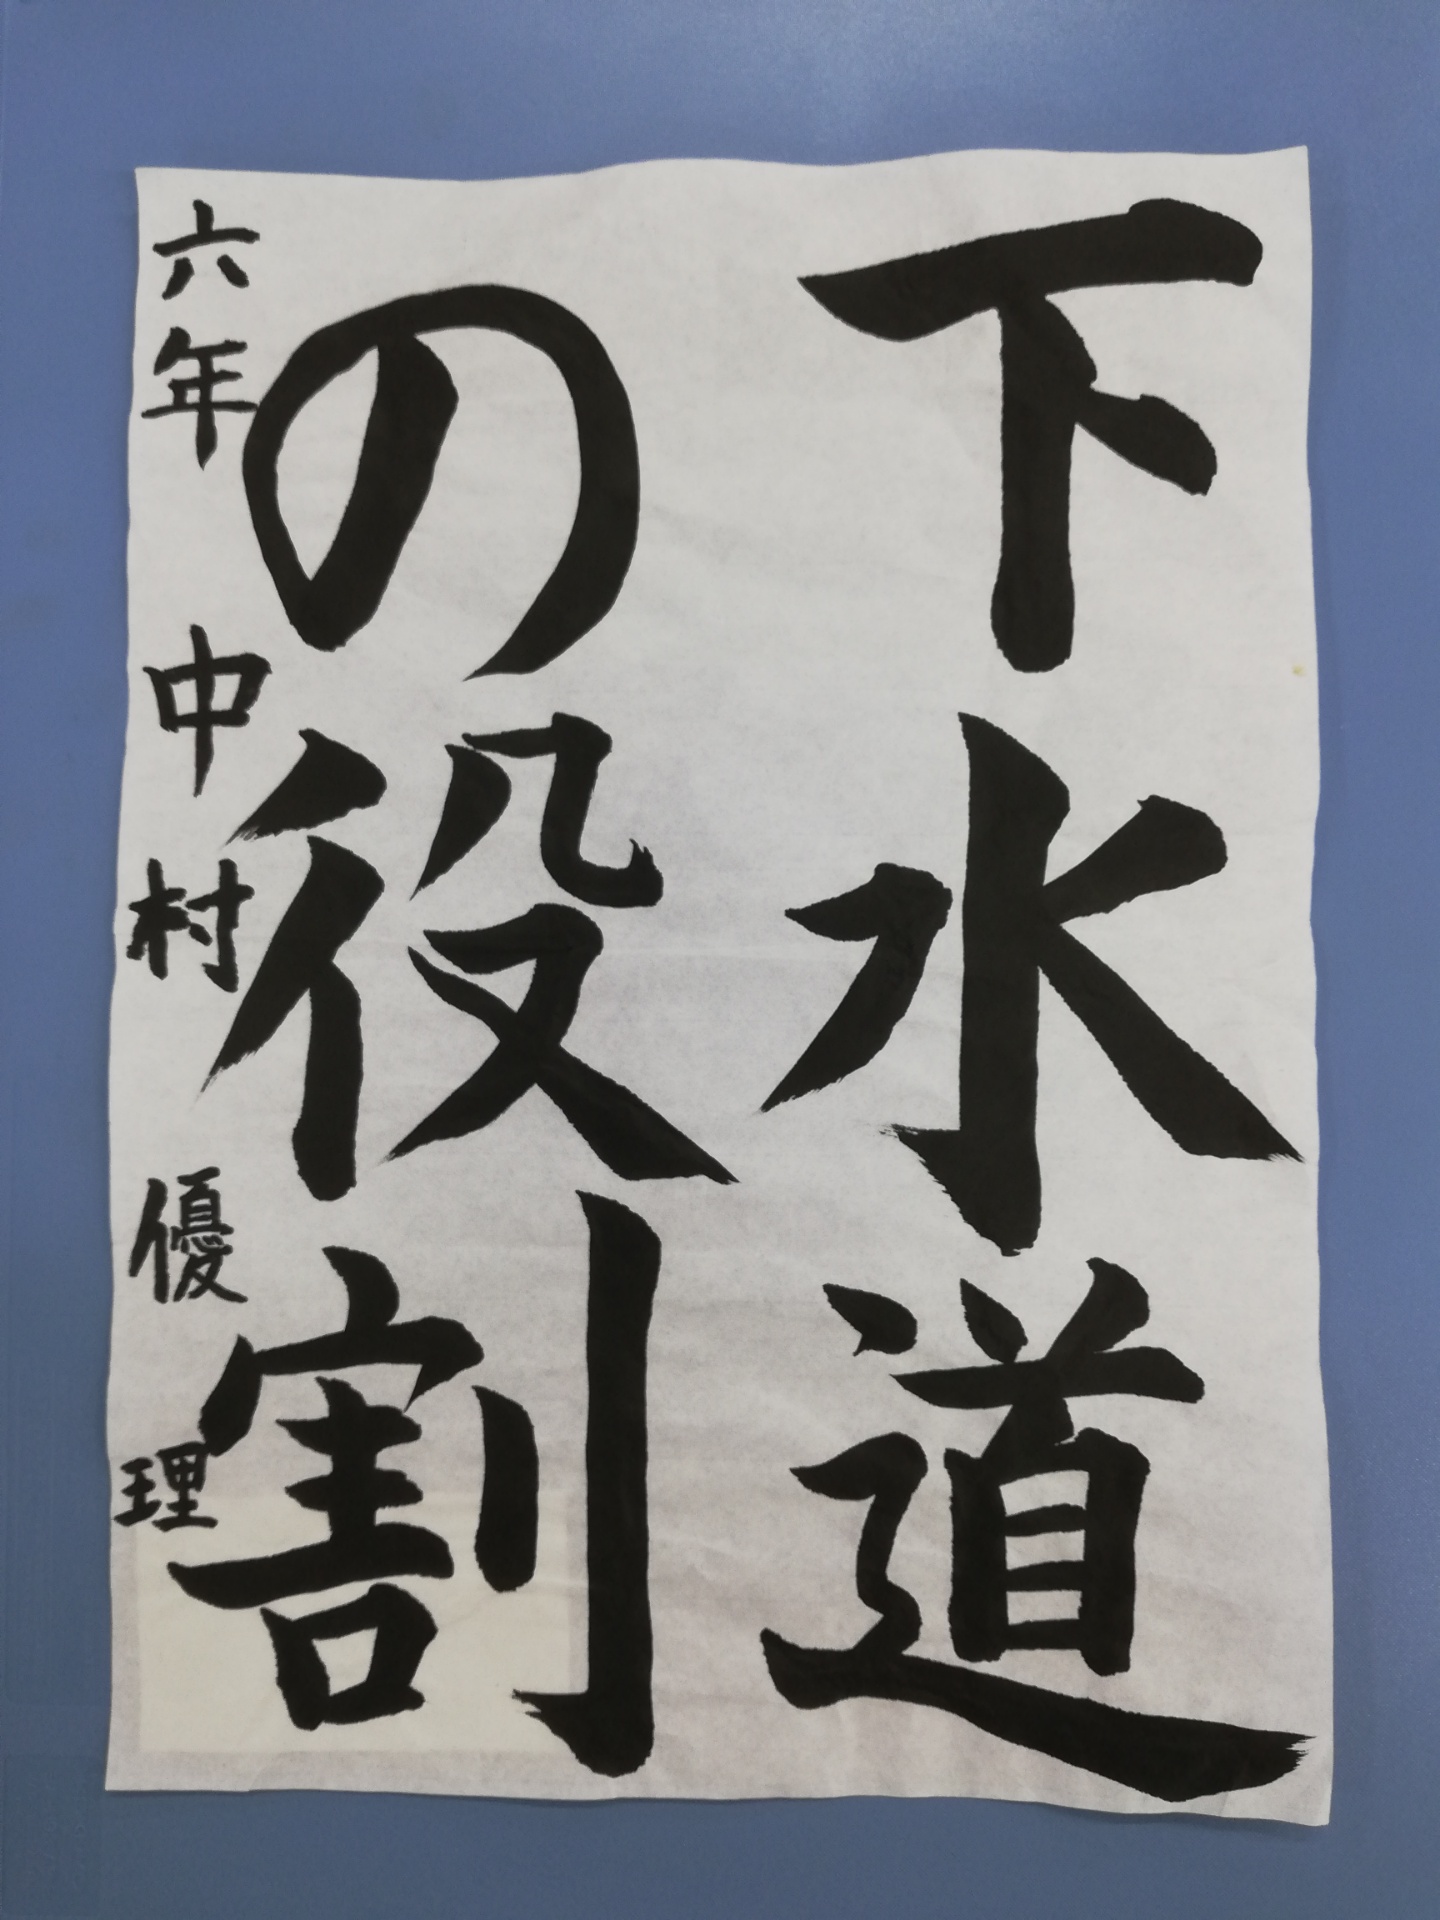 下水道
の役割
六年 中村優理